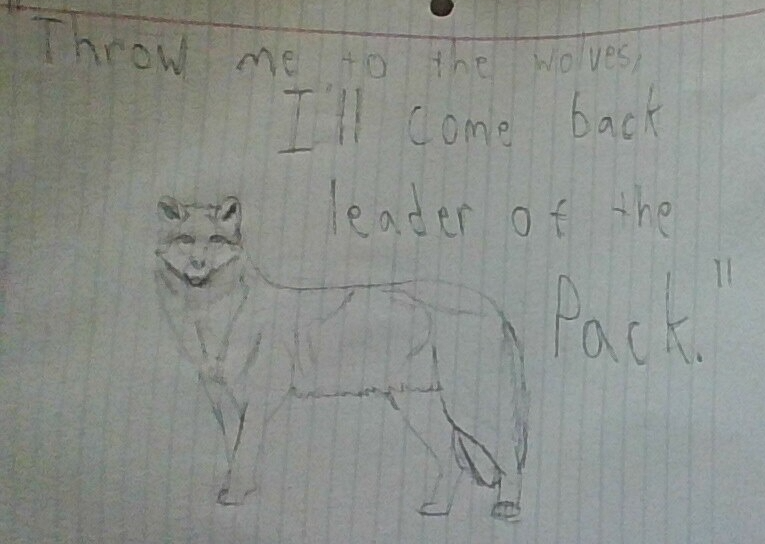 "Throw me to the wolves,
I'll come back
leader of the
Pack."